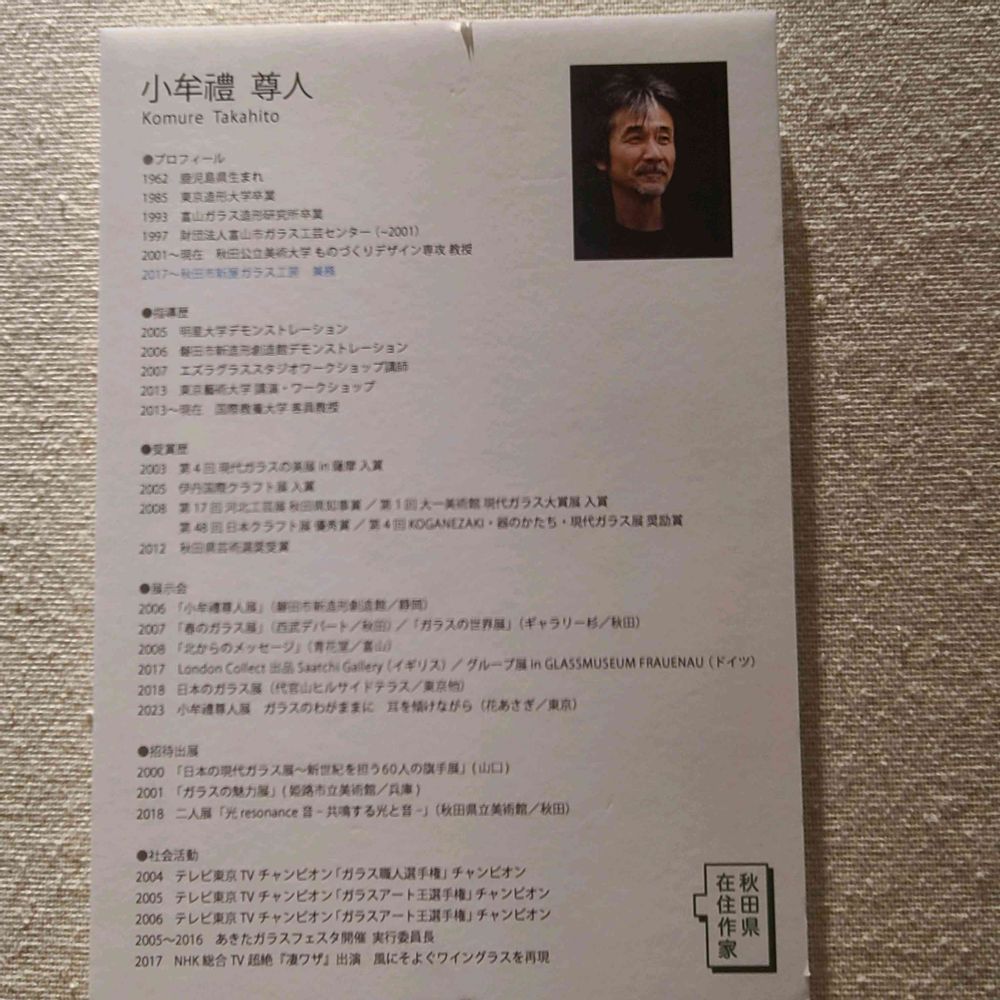 小牟禮 尊人
Komure Takahito
●プロフィール
1962 鹿児島県生まれ
1985 東京造形大学卒業
1993 富山ガラス造形研究所卒業
1997 財団法人富山市ガラス工芸センター（~2001）
2001～現在 秋田公立美術大学 ものづくりデザイン専攻 教授
2017～秋田市新屋ガラス工房 兼務
●指導歴
2005 明星大学デモンストレーション
2006 磐田市新造形創造館デモンストレーション
2007 エズラグラススタジオワークショップ講師
2013 東京藝術大学 講演・ワークショップ
2013～現在 国際教養大学 客員教授
●受賞歴
2003 第4回 現代ガラスの美展 in 薩摩 入賞
2005 伊丹国際クラフト展 入賞
2008 第17回 河北工芸展 秋田県知事賞 ／ 第1回 大一美術館 現代ガラス大賞展 入賞
第48回 日本クラフト展 優秀賞 ／ 第4回 KOGANEZAKI・器のかたち・現代ガラス展 奨励賞
2012 秋田県芸術選奨受賞
●展示会
2006 「小牟禮尊人展」（磐田市新造形創造館／静岡）
2007 「春のガラス展」（西武デパート／秋田）／「ガラスの世界展」（ギャラリー杉／秋田）
2008 「北からのメッセージ」（青花堂／富山）
2017 London Collect 出品 Saatchi Gallery（イギリス）／ グループ展 in GLASSMUSEUM FRAUENAU（ドイツ）
2018 日本のガラス展（代官山ヒルサイドテラス／東京他）
2023 小牟禮尊人展 ガラスのわがままに 耳を傾けながら（花あさぎ／東京）
●招待出展
2000 「日本の現代ガラス展～新世紀を担う60人の旗手展」(山口)
2001 「ガラスの魅力展」(姫路市立美術館／兵庫)
2018 二人展「光 resonance 音－共鳴する光と音－」（秋田県立美術館／秋田）
●社会活動
2004 テレビ東京 TV チャンピオン「ガラス職人選手権」チャンピオン
2005 テレビ東京 TV チャンピオン「ガラスアート王選手権」チャンピオン
2006 テレビ東京 TV チャンピオン「ガラスアート王選手権」チャンピオン
2005～2016 あきたガラスフェスタ開催 実行委員長
2017 NHK 総合 TV 超絶『凄ワザ』出演 風にそよぐワイングラスを再現
秋田県
在住作家